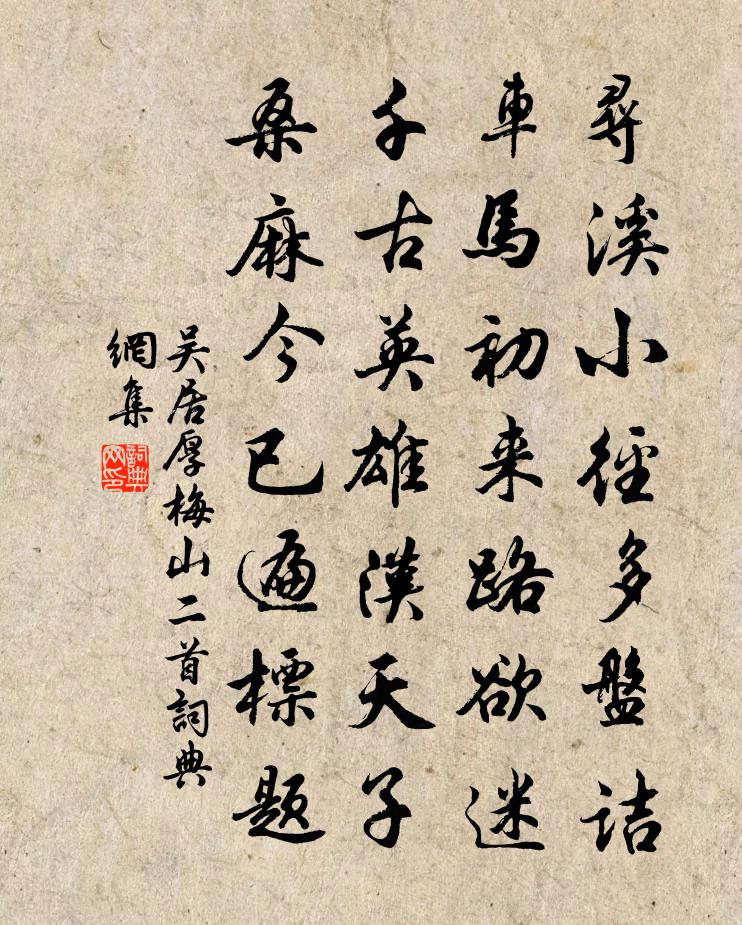 尋溪小徑多盤詰
車馬初来路欲迷
千古英雄漢天子
桑麻今已遍標題
吴居厚梅山二首詞典
網集
詞典
网印